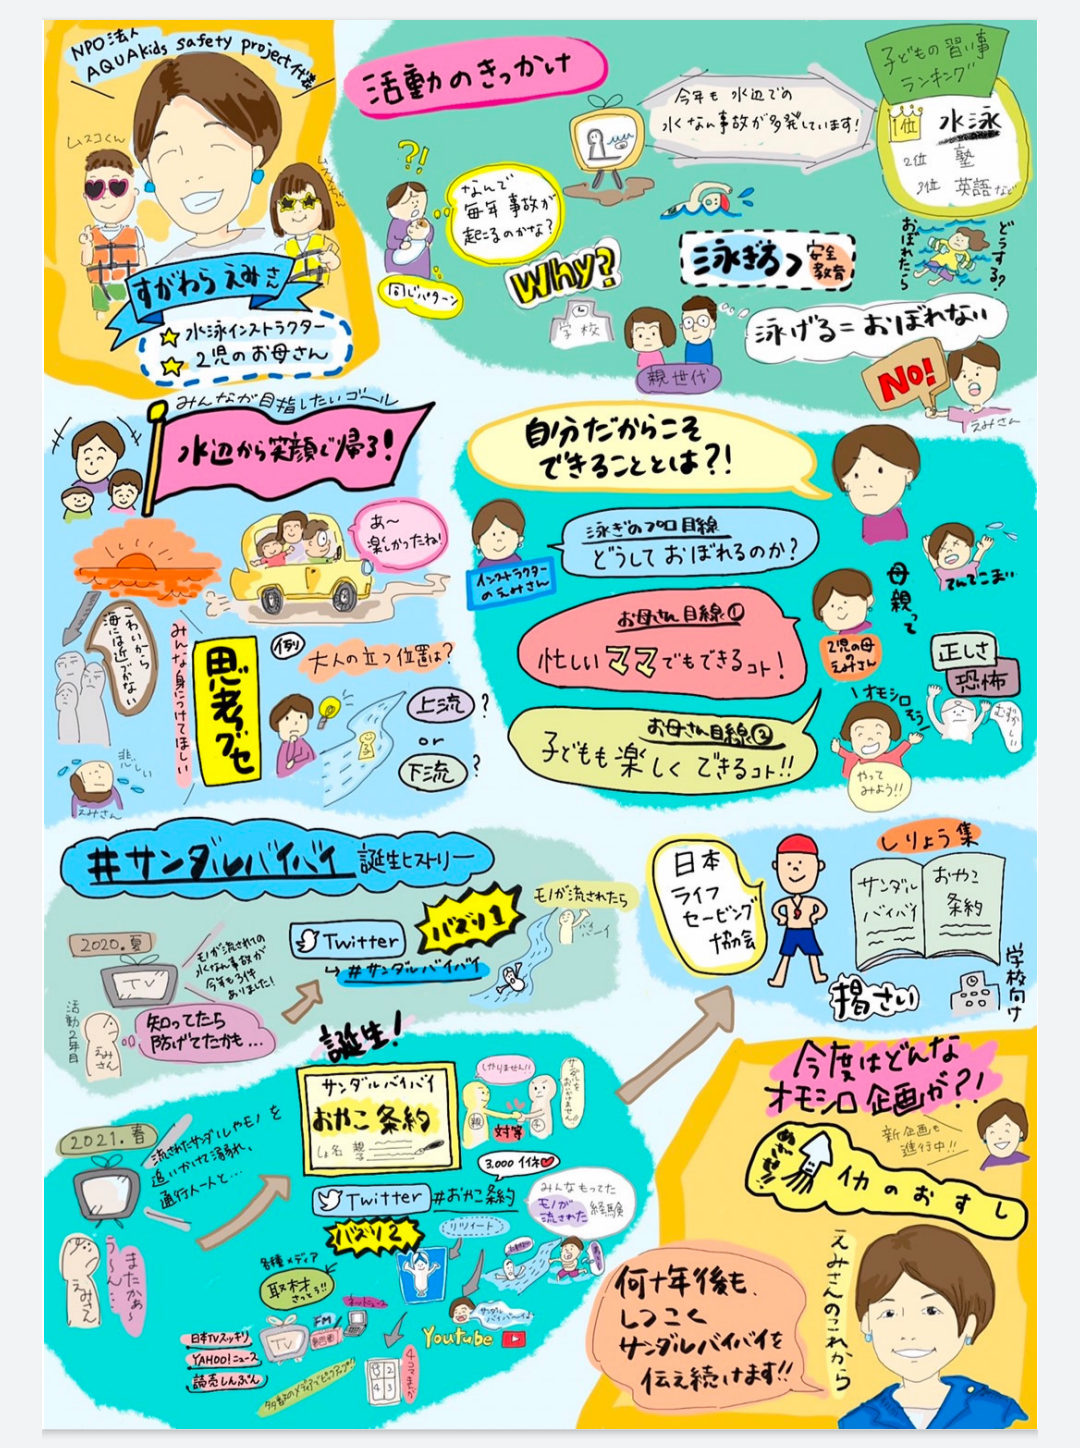 NPO法人
AQUAkids safety project代表
ムスコくん
すがわら えみさん
水泳インストラクター
2児のお母さん
活動のきっかけ
?!
なんで
毎年 事故が
起こるのかな?
同じパターン
今年も 水辺での
水なん事故が多発しています!
子どもの習い事
ランキング
1位 水泳
2位 塾
3位 英語など
Why?
学校
泳ぎろう
安全
教育
おぼれたら
どうする?
親世代
泳げる=おぼれない
NO!
えみさん
みんなが目指したいゴール
水辺から笑顔で帰る!
あ〜
楽しかったね!
こわいから
海には近づかない
みんな身につけてほしい
思考グセ
例
大人の立つ位置は?
上流?
or
下流?
悲しい
えみさん
自分だからこそ
できることとは?!
インストラクター
のえみさん
泳ぎのプロ目線
どうしておぼれるのか?
お母さん目線①
忙しいママでもできるコト!
お母さん目線②
子どもも楽しくできるコト!!
母親って
てんてこまい
2児の母
の
えみさん
正しさ
恐怖
むずかしい
オモシロ
そう
やって
みよう!!
#サンダルバイバイ 誕生ヒストリー
2020.夏
TV
モノが流されての
水なん事故が
今年も3件
ありました!
活動2年目
えみさん
知ってたら
防げてたかも…
Twitter
#サンダルバイバイ
バズり1
モノが流されたら
バイバーイ
日本
ライフ
セービング
協会
しりょう集
サンダル
バイバイ
おやこ
条約
掲さい
学校向け
誕生!
サンダルバイバイ
おやこ条約
しょ名 親子
しかりません!!
サンダルをおいかけません!!
親
対等
子
3,000イイネ
2021.春
流されたサンダルやモノを
追いかけて溺れ、
通行人一人と…
えみさん
う〜ん…
またかぁ〜
Twitter
#おやこ条約
バズり2
リツイート
みんなもってた
モノが
流された
経験
各種メディア
取材
さっとう!!
TV
FM
日本TVスッキリ
YAHOO!ニュース
読売しんぶん
多数のメディアでピックアップ!!
4コマまんが
1 2
3 4
サンダル
バイバーイ♪
Youtube
今度はどんな
オモシロ企画が?!
新企画も
進行中!!
イカのおすし
えみさんのこれから
何十年後も、
しつこく
サンダルバイバイを
伝え続けます!!